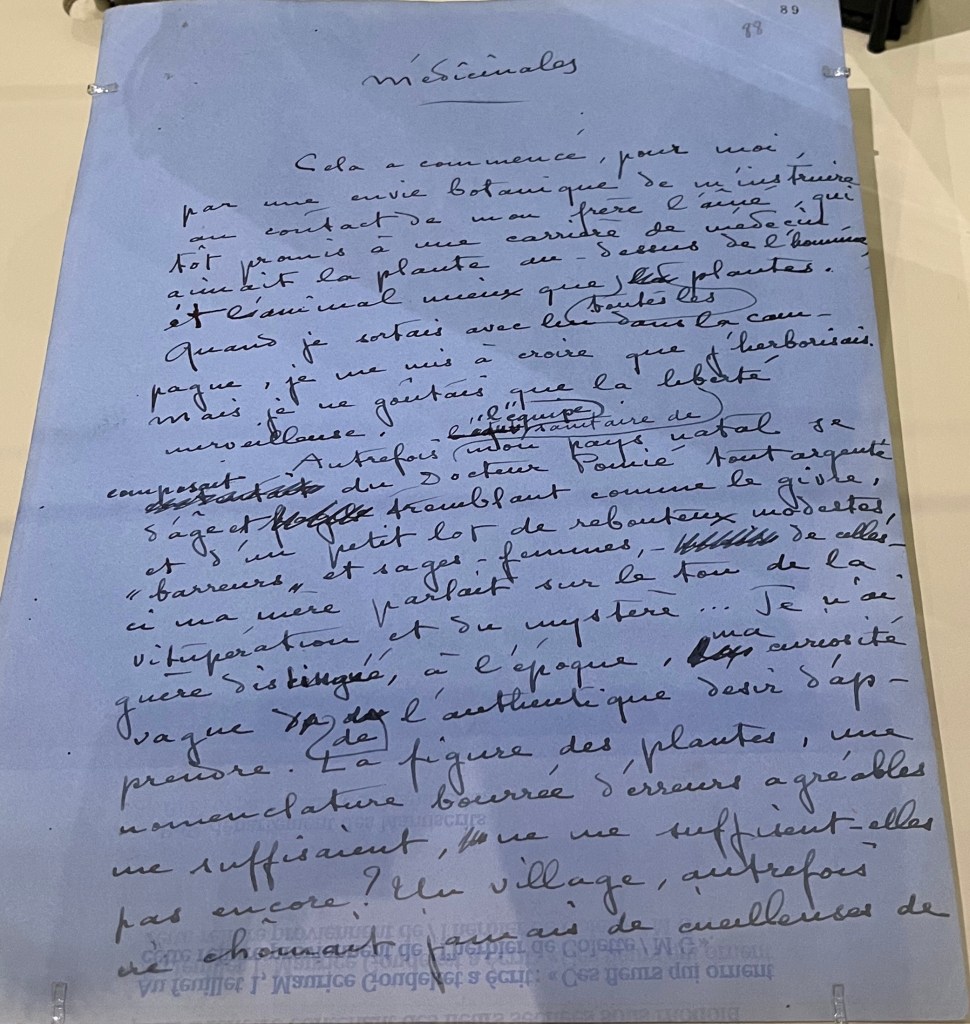 89
88
Médicinales
Cela a commencé, pour moi,
par une envie botanique de m'instruire
au contact de mon frère l'aîné, qui
tôt promis à une carrière de médecin
aimait la plante au-dessus de l'homme,
et l'animal mieux que les plantes.
toutes les
Quand je sortais avec lui dans la cam-
pagne, je me mis à croire que j'herborisais.
Mais je ne goûtais que la liberté
merveilleuse.
"l'équipe"
sanitaire de
Autrefois mon pays natal se
composait
du Docteur Pomié tout argenté
d'âge et tremblant comme le givre,
et d'un petit lot de rebouteux modestes,
"barreurs" et sages-femmes, - de celles-
ci ma mère parlait sur le ton de la
vitupération et du mystère... Je n'ai
guère distingué, à l'époque, ma curiosité
vague de l'authentique désir d'ap-
prendre. La figure des plantes, une
nomenclature bourrée d'erreurs agréables
me suffisaient, ne me suffisent-elles
pas encore? Un village, autrefois
ne chômait jamais de cueilleuses de